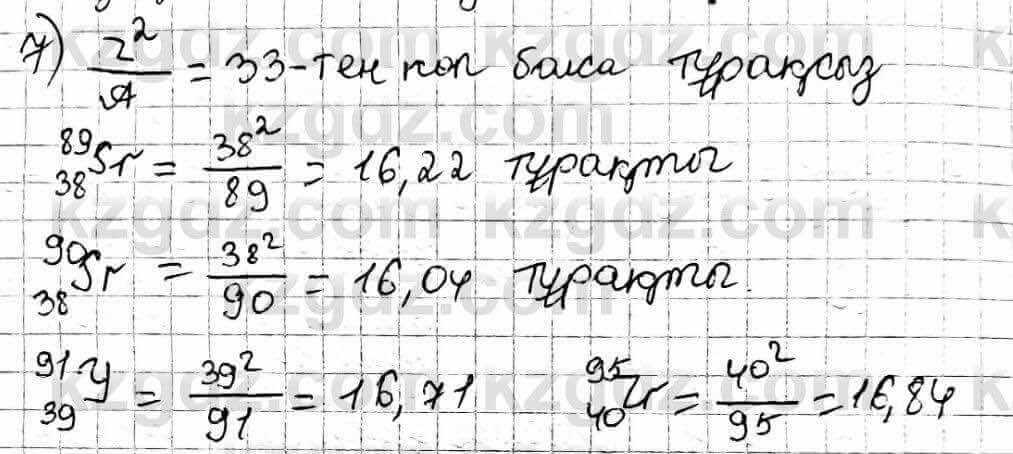 7) z²/A = 33-тен көп болса тұрақсыз
⁸⁹₃₈Sr = 38²/89 = 16,22 тұрақты
⁹⁰₃₈Sr = 38²/90 = 16,04 тұрақты.
⁹¹₃₉Y = 39²/91 = 16,71 ⁹⁵₄₀Zr = 40²/95 = 16,84
kzgdz.com